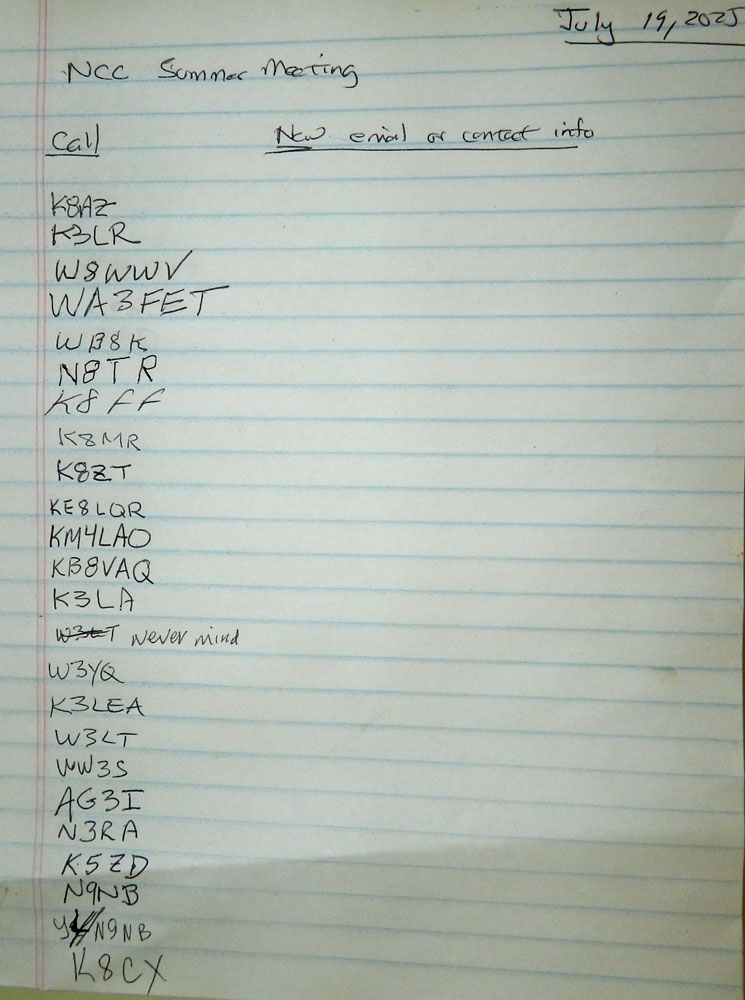 July 19, 2025
NCC Summer Meeting
Call New email or contact info
K8AZ
K3LR
W8WWV
WA3FET
WB8K
N8TR
K8FF
K8MR
K8ZT
KE8LQR
KM4LAO
KB8VAQ
K3LA
W3LT never mind
W3YQ
K3LEA
W3LT
WW3S
AG3I
N3RA
K5ZD
N9NB
N9NB
K8CX